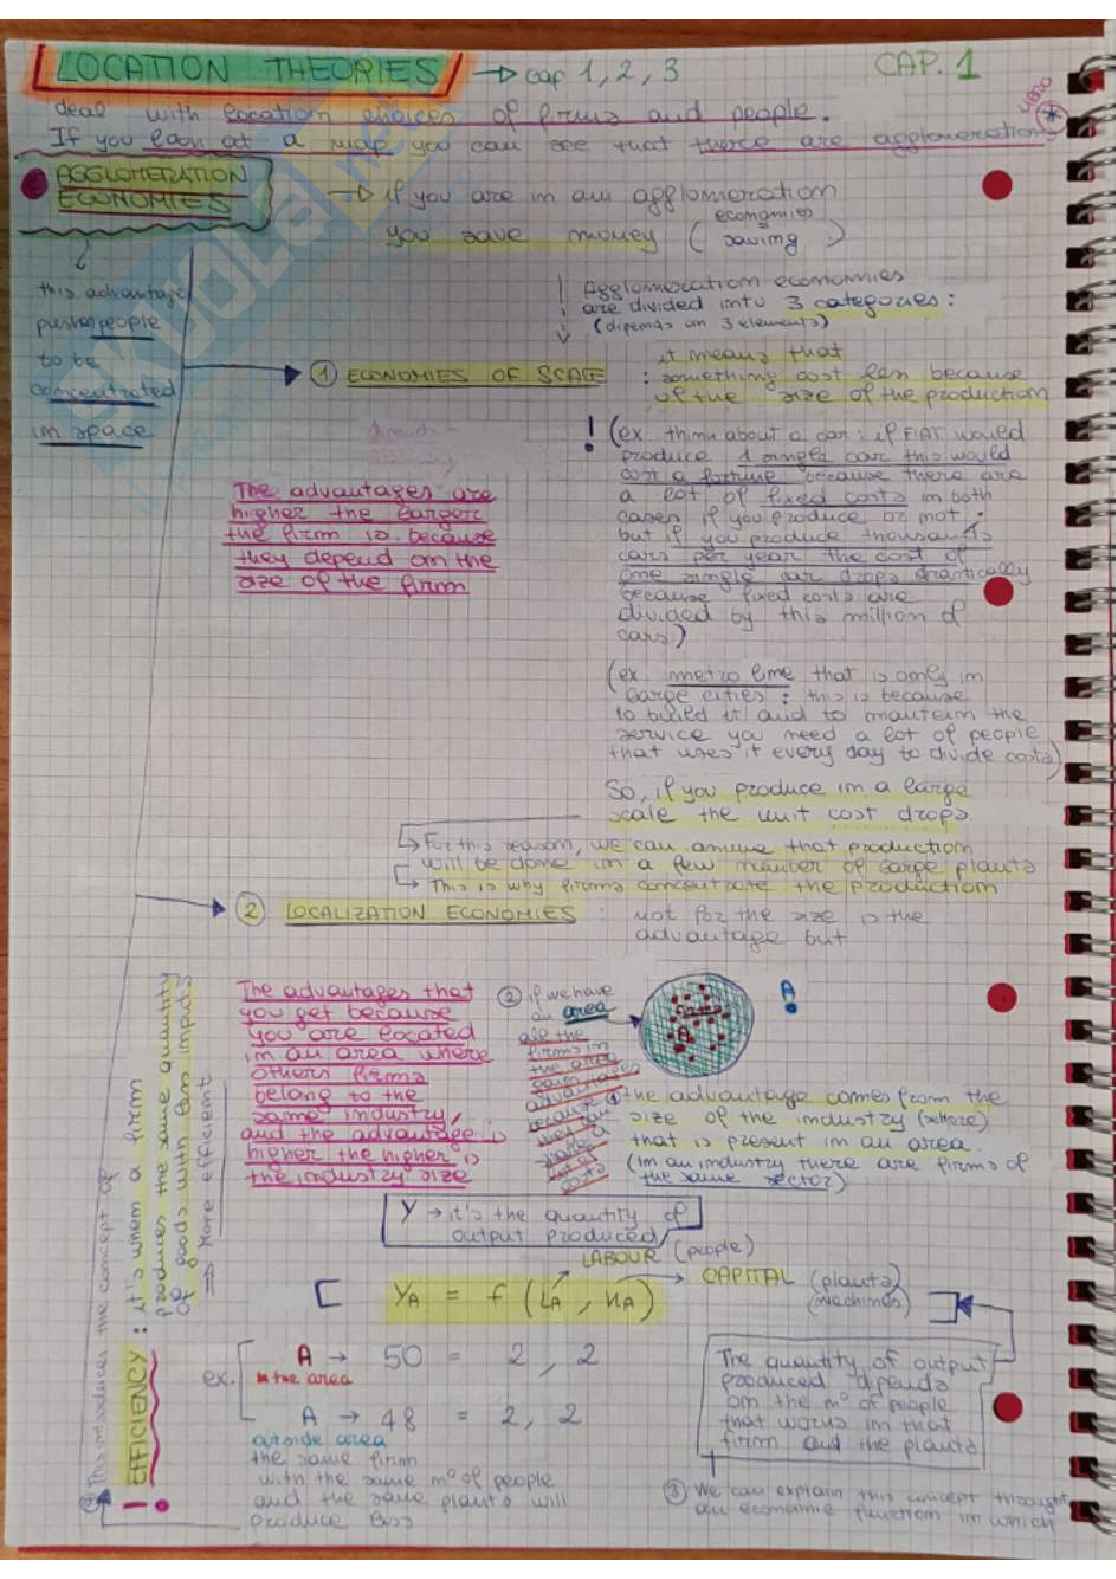 LOCATION THEORIES → cap 1, 2, 3
CAP. 1
deal with location choices of firms and people.
If you look at a map you can see that there are agglomeration
AGGLOMERATION
ECONOMIES
→ if you are in an agglomeration
you save money (economies saving)
this advantage
pushes people
to be
concentrated
in space
Agglomeration economies
are divided into 3 categories:
(dipends on 3 elements)
1 ECONOMIES OF SCALE
: it means that
something cost less because
of the size of the production
! (ex. think about a car: if FIAT would
produce 1 single car this would
cost a fortune because there are
a lot of fixed costs in both
cases if you produce or not;
but if you produce thousands
cars per year the cost of
one single car drops drastically
because fixed costs are
divided by this million of
cars)
The advantages are
higher the larger
the firm is because
they depend on the
size of the firm
(ex. metro line that is only in
large cities: this is because
to build it and to mantein the
service you need a lot of people
that uses it every day to divide costs)
So, if you produce in a large
scale the unit cost drops
→ For this reason, we can assume that production
will be done in a few number of large plants
→ This is why firms concentrate the production
2 LOCALIZATION ECONOMIES : not for the size is the
advantage but
The advantages that
you get because
you are located
in an area where
others firms
belong to the
same industry,
and the advantage is
higher the higher is
the industry size
2 if we have
an area
all the
firms in
the area
A
A!
1 the advantage comes from the
size of the industry
that is present in an area.
(in an industry there are firms of
the same sector)
Y → it's the quantity of
output produced
LABOUR (people)
YA = f (LA, KA) → CAPITAL (plants)
(machines)
ex. A → 50 = 2, 2
in the area
A → 48 = 2, 2
outside area
the same firm
with the same n° of people
and the same plants will
produce less
The quantity of output
produced dipends
on the n° of people
that works in that
firm and the plants
3 We can explain this concept throught
an economic function in which
This introduces the concept of
! EFFICIENCY: it's when a firm
produces the same quantity
of goods with less inputs
⇒ more efficient
SKUOLA.net